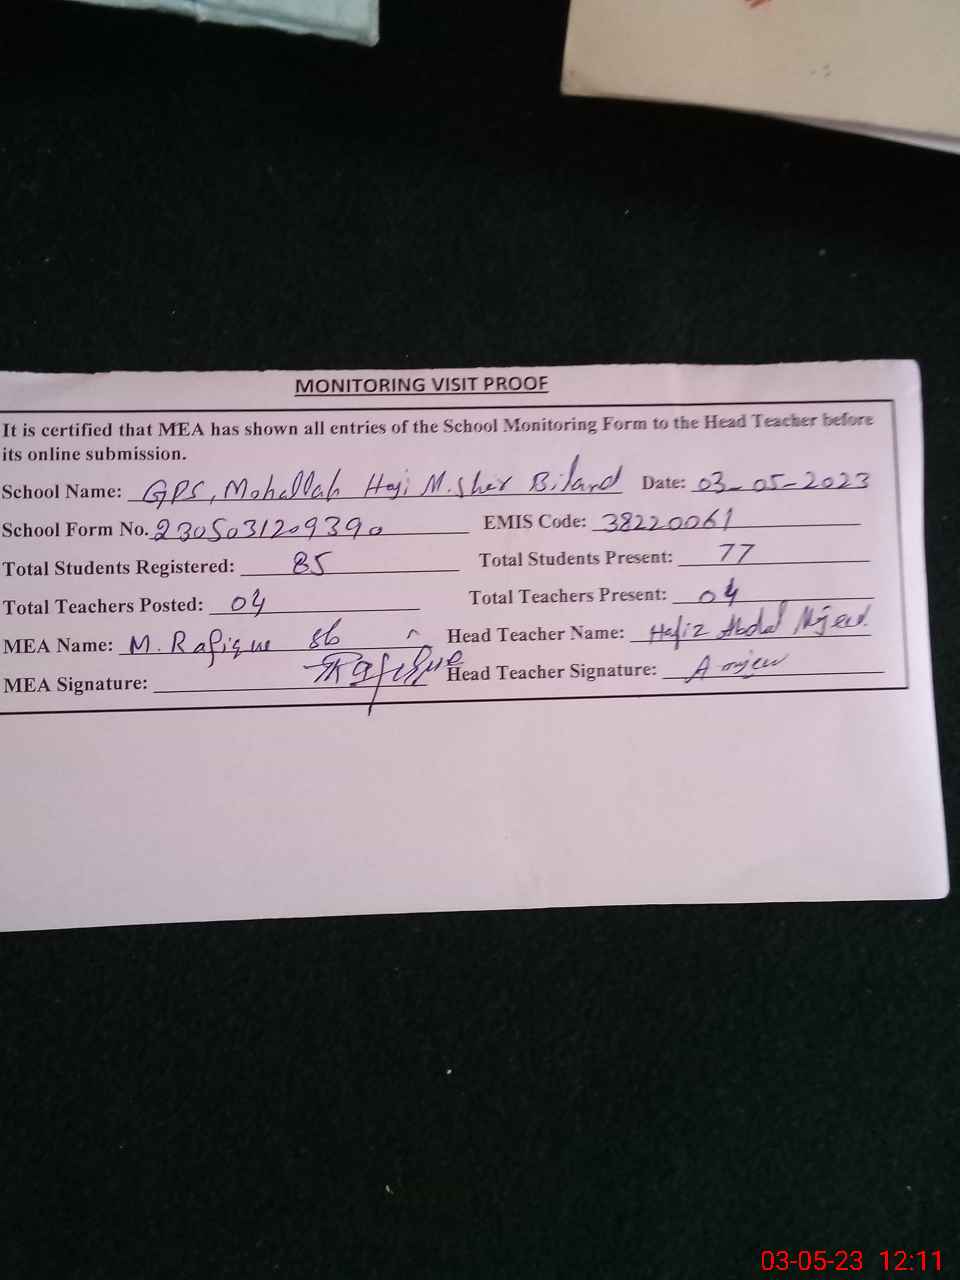 MONITORING VISIT PROOF
It is certified that MEA has shown all entries of the School Monitoring Form to the Head Teacher before
its online submission.
School Name: GPS, Mohallah Haji M. Sher Biland Date: 03-05-2023
School Form No. 2305031209390 EMIS Code: 38220061
Total Students Registered: 85 Total Students Present: 77
Total Teachers Posted: 04 Total Teachers Present: 04
MEA Name: M. Rafique sb Head Teacher Name: Hafiz Abdul Majeed
MEA Signature: Rafique Head Teacher Signature:
03-05-23 12:11